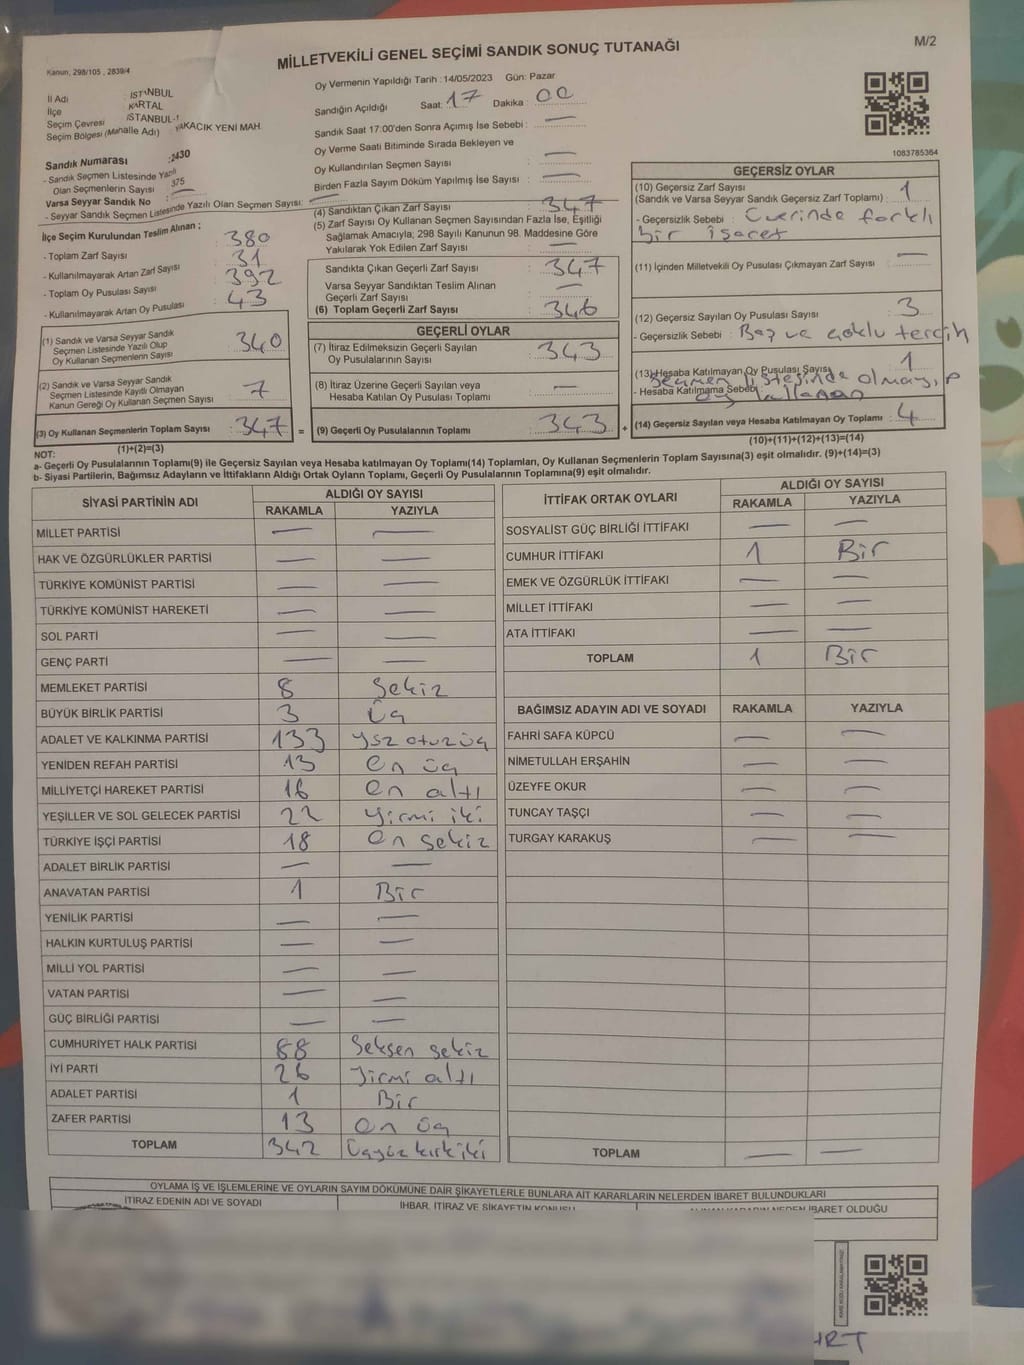 MİLLETVEKİLİ GENEL SEÇİMİ SANDIK SONUÇ TUTANAĞI
M/2
Kanun, 298/105 , 2839/4
İl Adı : İSTANBUL
İlçe : KARTAL
Seçim Çevresi : İSTANBUL-1
Seçim Bölgesi (Mahalle Adı) : YAKACIK YENİ MAH.
Oy Vermenin Yapıldığı Tarih : 14/05/2023 Gün: Pazar
Sandığın Açıldığı Saat: 17 Dakika : 00
Sandık Saat 17:00'den Sonra Açımış İse Sebebi : —
Oy Verme Saati Bitiminde Sırada Bekleyen ve
Oy Kullandırılan Seçmen Sayısı : —
Birden Fazla Sayım Döküm Yapılmış İse Sayısı : —
1083785364
Sandık Numarası : 2430
- Sandık Seçmen Listesinde Yazılı
Olan Seçmenlerin Sayısı : 375
Varsa Seyyar Sandık No : —
- Seyyar Sandık Seçmen Listesinde Yazılı Olan Seçmen Sayısı: —
İlçe Seçim Kurulundan Teslim Alınan ;
- Toplam Zarf Sayısı : 380
- Kullanılmayarak Artan Zarf Sayısı : 31
- Toplam Oy Pusulası Sayısı : 392
- Kullanılmayarak Artan Oy Pusulası : 43
(1) Sandık ve Varsa Seyyar Sandık
Seçmen Listesinde Yazılı Olup
Oy Kullanan Seçmenlerin Sayısı : 340
(2) Sandık ve Varsa Seyyar Sandık
Seçmen Listesinde Kayıtlı Olmayan
Kanun Gereği Oy Kullanan Seçmen Sayısı : 7
(3) Oy Kullanan Seçmenlerin Toplam Sayısı : 347 =
(1)+(2)=(3)
(4) Sandıktan Çıkan Zarf Sayısı : 347
(5) Zarf Sayısı Oy Kullanan Seçmen Sayısından Fazla İse, Eşitliği
Sağlamak Amacıyla; 298 Sayılı Kanunun 98. Maddesine Göre
Yakılarak Yok Edilen Zarf Sayısı : —
Sandıkta Çıkan Geçerli Zarf Sayısı : 347
Varsa Seyyar Sandıktan Teslim Alınan
Geçerli Zarf Sayısı : —
(6) Toplam Geçerli Zarf Sayısı : 346
GEÇERLİ OYLAR
(7) İtiraz Edilmeksizin Geçerli Sayılan
Oy Pusulalarının Sayısı : 343
(8) İtiraz Üzerine Geçerli Sayılan veya
Hesaba Katılan Oy Pusulaları Toplamı : —
(9) Geçerli Oy Pusulalarının Toplamı : 343 +
GEÇERSİZ OYLAR
(10) Geçersiz Zarf Sayısı
(Sandık ve Varsa Seyyar Sandık Geçersiz Zarf Toplamı) : 1
- Geçersizlik Sebebi : Üzerinde farklı
bir işaret
(11) İçinden Milletvekili Oy Pusulası Çıkmayan Zarf Sayısı : —
(12) Geçersiz Sayılan Oy Pusulası Sayısı : 3
- Geçersizlik Sebebi : Boş ve çoklu tercih
(13) Hesaba Katılmayan Oy Pusulası Sayısı : 1
- Hesaba Katılmama Sebebi : Seçmen listesinde olmayıp
oy kullanan
(14) Geçersiz Sayılan veya Hesaba Katılmayan Oy Toplamı : 4
(10)+(11)+(12)+(13)=(14)
NOT:
a- Geçerli Oy Pusulalarının Toplamı(9) ile Geçersiz Sayılan veya Hesaba katılmayan Oy Toplamı(14) Toplamları, Oy Kullanan Seçmenlerin Toplam Sayısına(3) eşit olmalıdır. (9)+(14)=(3)
b- Siyasi Partilerin, Bağımsız Adayların ve İttifakların Aldığı Ortak Oyların Toplamı, Geçerli Oy Pusulalarının Toplamına(9) eşit olmalıdır.
SİYASİ PARTİNİN ADI ALDIĞI OY SAYISI
RAKAMLA YAZIYLA
MİLLET PARTİSİ — —
HAK VE ÖZGÜRLÜKLER PARTİSİ — —
TÜRKİYE KOMÜNİST PARTİSİ — —
TÜRKİYE KOMÜNİST HAREKETİ — —
SOL PARTİ — —
GENÇ PARTİ — —
MEMLEKET PARTİSİ 8 Sekiz
BÜYÜK BİRLİK PARTİSİ 3 Üç
ADALET VE KALKINMA PARTİSİ 133 yüz otuz üç
YENİDEN REFAH PARTİSİ 13 on üç
MİLLİYETÇİ HAREKET PARTİSİ 16 on altı
YEŞİLLER VE SOL GELECEK PARTİSİ 22 yirmi iki
TÜRKİYE İŞÇİ PARTİSİ 18 on sekiz
ADALET BİRLİK PARTİSİ — —
ANAVATAN PARTİSİ 1 Bir
YENİLİK PARTİSİ — —
HALKIN KURTULUŞ PARTİSİ — —
MİLLİ YOL PARTİSİ — —
VATAN PARTİSİ — —
GÜÇ BİRLİĞİ PARTİSİ — —
CUMHURİYET HALK PARTİSİ 88 Seksen sekiz
İYİ PARTİ 26 yirmi altı
ADALET PARTİSİ 1 Bir
ZAFER PARTİSİ 13 on üç
TOPLAM 342 Üçyüz kırk iki
İTTİFAK ORTAK OYLARI ALDIĞI OY SAYISI
RAKAMLA YAZIYLA
SOSYALİST GÜÇ BİRLİĞİ İTTİFAKI — —
CUMHUR İTTİFAKI 1 Bir
EMEK VE ÖZGÜRLÜK İTTİFAKI — —
MİLLET İTTİFAKI — —
ATA İTTİFAKI — —
TOPLAM 1 Bir
BAĞIMSIZ ADAYIN ADI VE SOYADI RAKAMLA YAZIYLA
FAHRİ SAFA KÜPCÜ — —
NİMETULLAH ERŞAHİN — —
ÜZEYFE OKUR — —
TUNCAY TAŞÇI — —
TURGAY KARAKUŞ — —
TOPLAM — —
OYLAMA İŞ VE İŞLEMLERİNE VE OYLARIN SAYIM DÖKÜMÜNE DAİR ŞİKAYETLERLE BUNLARA AİT KARARLARIN NELERDEN İBARET BULUNDUKLARI
İTİRAZ EDENİN ADI VE SOYADI İHBAR, İTİRAZ VE ŞİKAYETİN KONUSU İBARET OLDUĞU